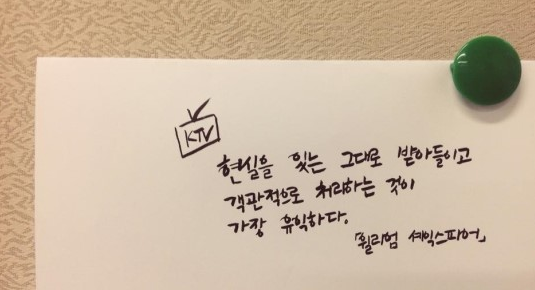 KTV
현실을 있는 그대로 받아들이고
객관적으로 처리하는 것이
가장 유익하다.
「휠리엄 셰익스피어」